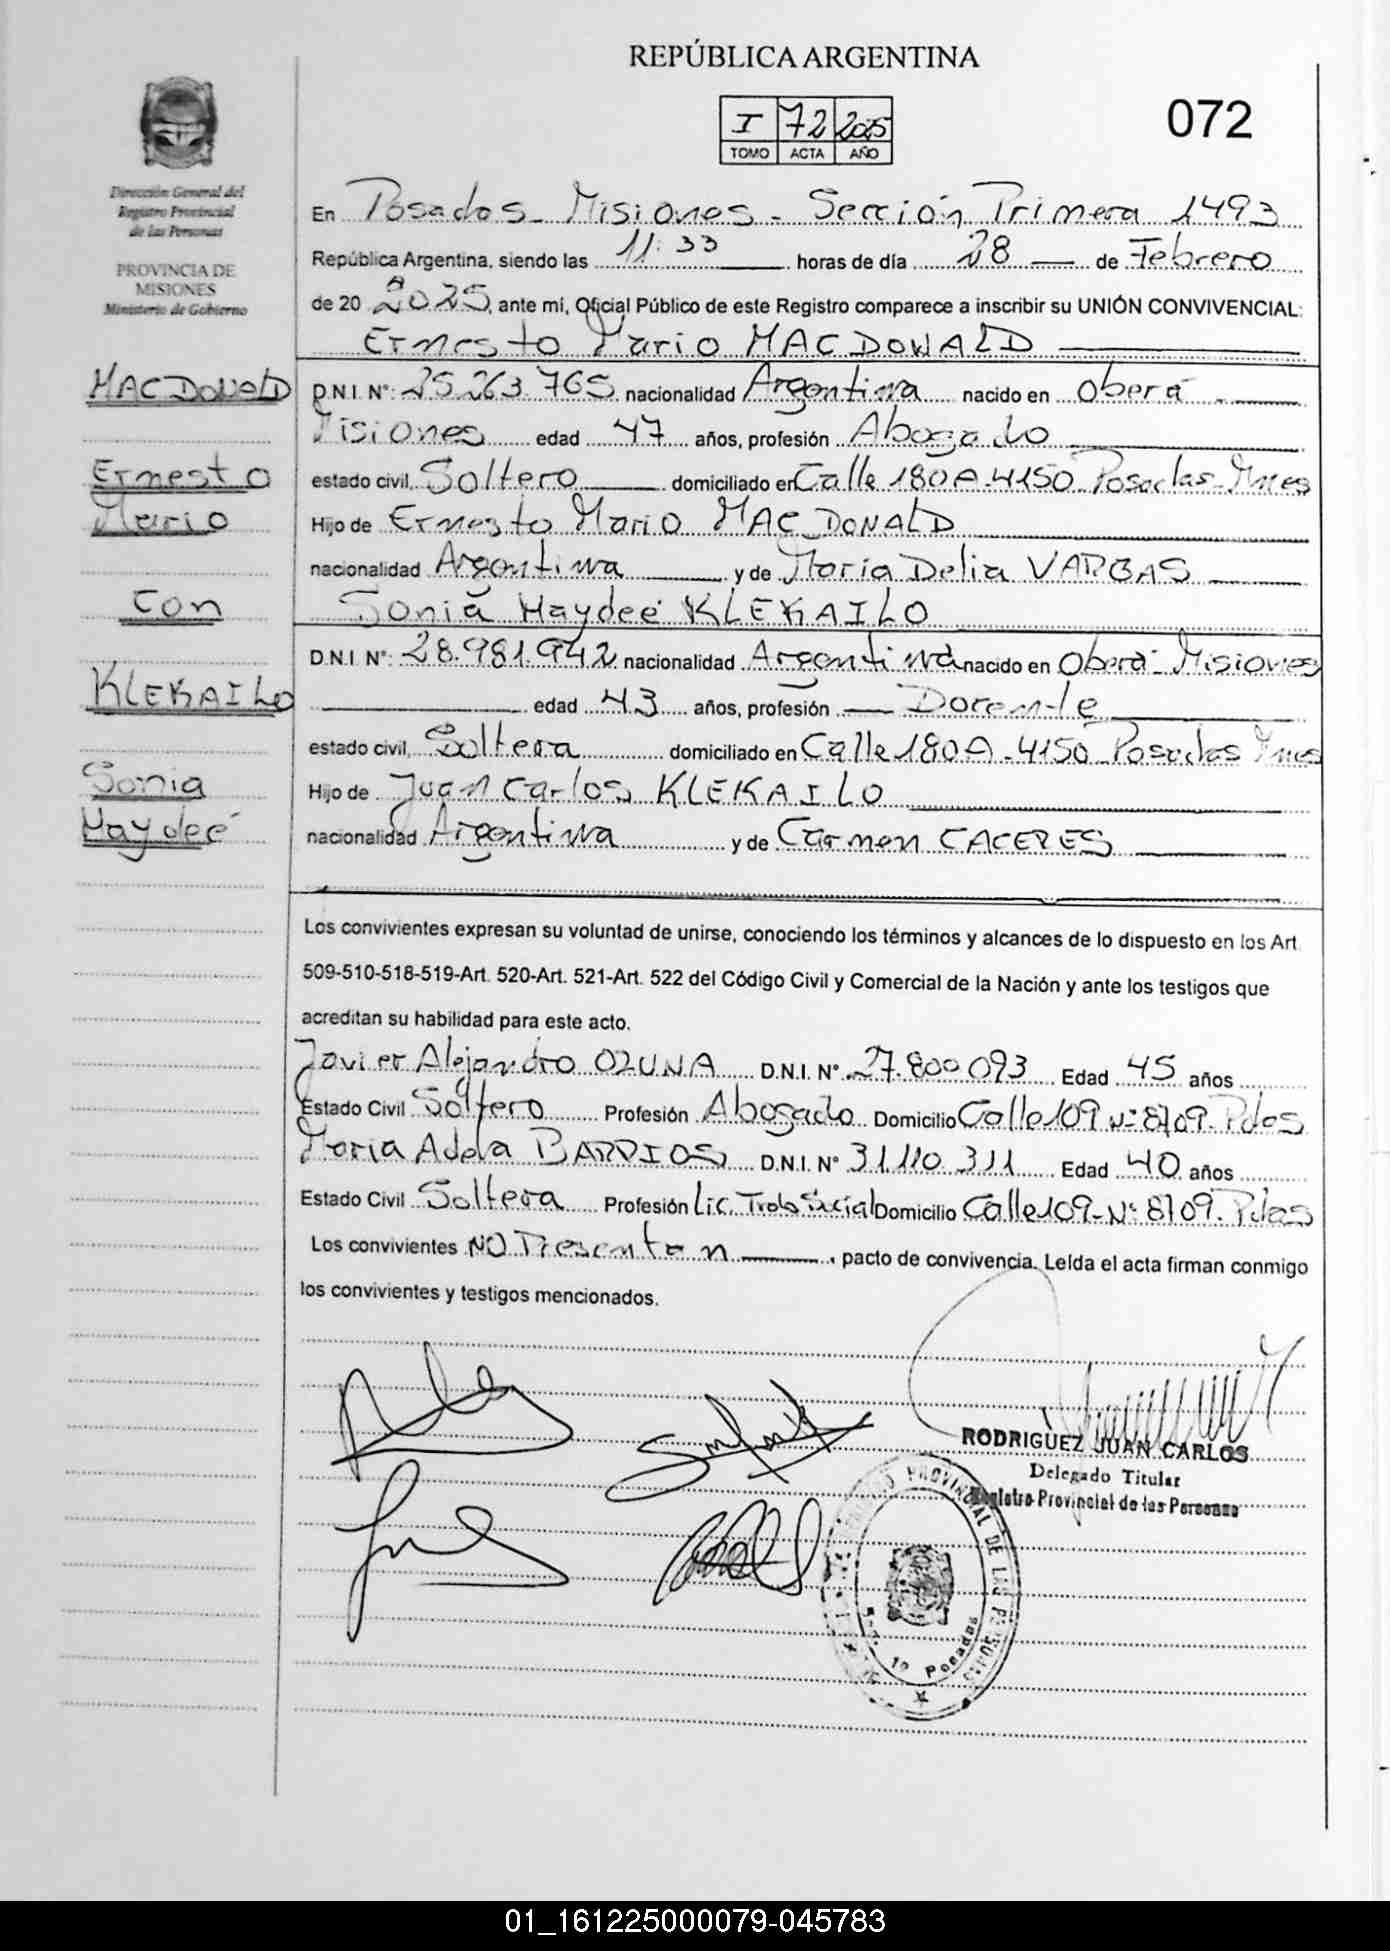 REPÚBLICA ARGENTINA
I 72 2025
TOMO ACTA AÑO
072
Dirección General del
Registro Provincial
de las Personas
PROVINCIA DE
MISIONES
Ministerio de Gobierno
En Posadas - Misiones - Sección Primera 1493
República Argentina, siendo las 11:33 horas de día 28 de Febrero
de 20 2025, ante mi, Oficial Público de este Registro comparece a inscribir su UNIÓN CONVIVENCIAL:
Ernesto Mario MAC DONALD
MAC DONALD
Ernesto
Mario
con
KLEKAILO
Sonia
Haydeé
D.N.I. N°: 25.263.765 nacionalidad Argentina nacido en Oberá -
Misiones edad 47 años, profesión Abogado
estado civil, Soltero domiciliado en Calle 180A-4150 Posadas-Mnes
Hijo de Ernesto Mario MAC DONALD
nacionalidad Argentina y de Maria Delia VARGAS
Sonia Haydeé KLEKAILO
D.N.I. N°: 28.981.942 nacionalidad Argentina nacido en Oberá - Misiones
edad 43 años, profesión Docente
estado civil, Soltera domiciliado en Calle 180A - 4150 Posadas Mnes
Hijo de Juan Carlos KLEKAILO
nacionalidad Argentina y de Carmen CACERES
Los convivientes expresan su voluntad de unirse, conociendo los términos y alcances de lo dispuesto en los Art.
509-510-518-519-Art. 520-Art. 521-Art. 522 del Código Civil y Comercial de la Nación y ante los testigos que
acreditan su habilidad para este acto.
Javier Alejandro OZUNA D.N.I. N° 27.800.093 Edad 45 años
Estado Civil Soltero Profesión Abogado Domicilio Calle 109 N° 8709. Pdas
Maria Adela BARRIOS D.N.I. N° 31.110.311 Edad 40 años
Estado Civil Soltera Profesión Lic. Trab. Social Domicilio Calle 109- N° 8709. Pdas
Los convivientes NO Presentan, pacto de convivencia. Leída el acta firman conmigo
los convivientes y testigos mencionados.
RODRIGUEZ JUAN CARLOS
Delegado Titular
Registro Provincial de las Personas
REGISTRO PROVINCIAL DE LAS PERSONAS
Sec. 1° Posadas
01_161225000079-045783